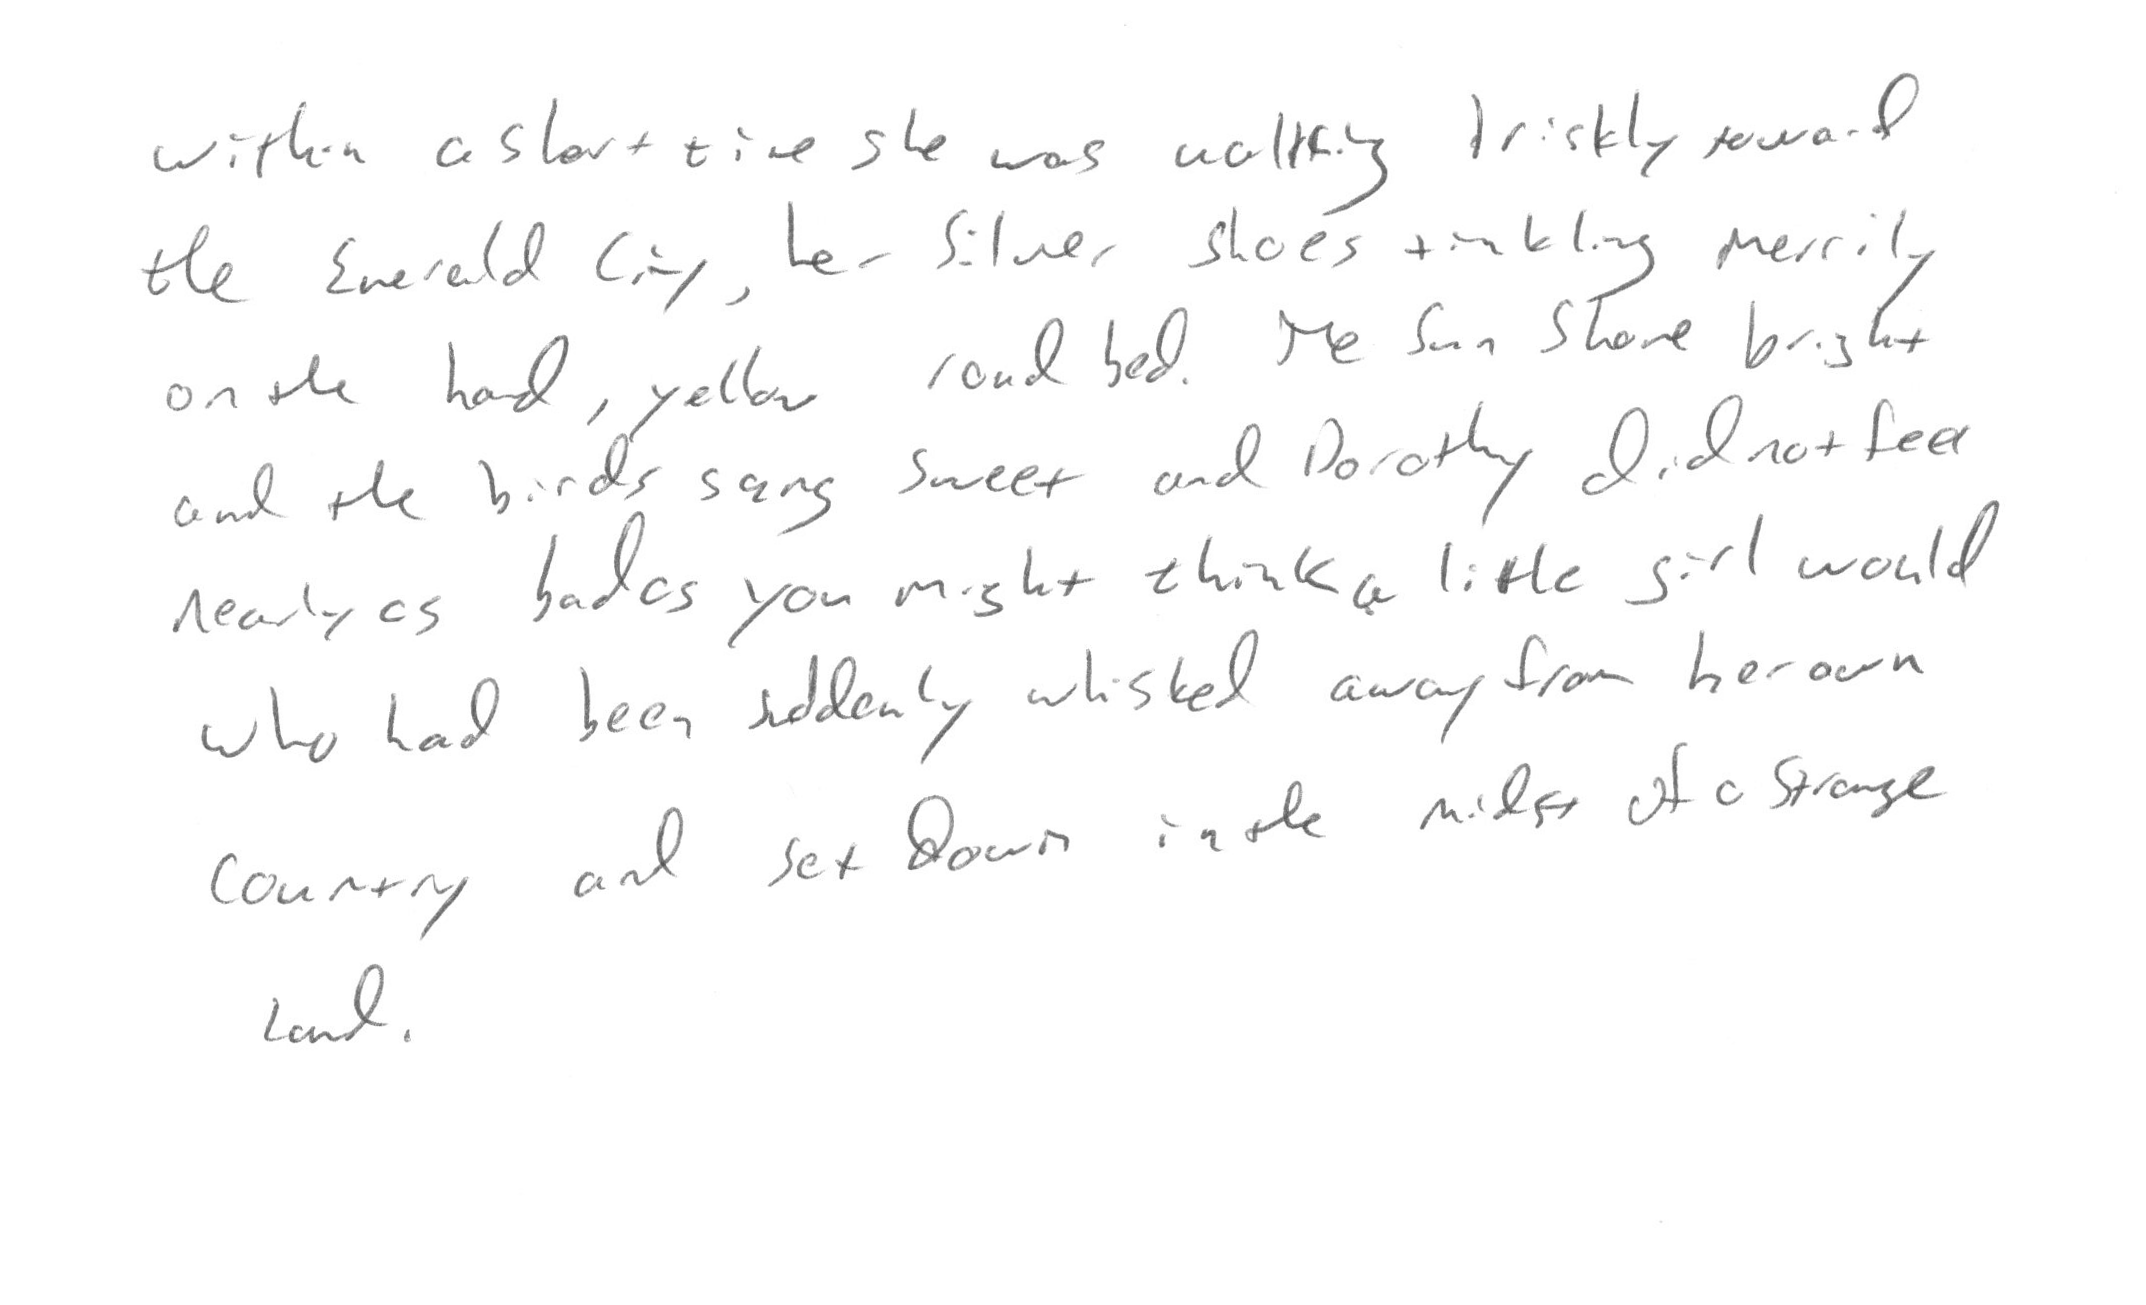 within a short time she was walking briskly toward
the Emerald City, her Silver Shoes tinkling merrily
on the hard, yellow road bed. The Sun Shone bright
and the birds sang Sweet and Dorothy did not feel
nearly as bad as you might think a little girl would
who had been suddenly whisked away from her own
Country and set Down in the midst of a Strange
Land.